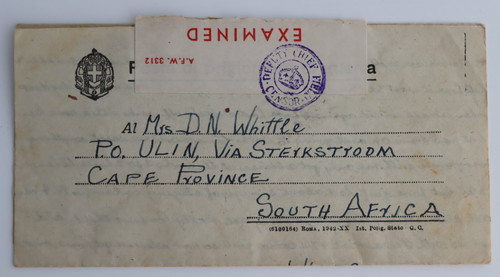 EXAMINED
A.F.W. 3312
DEPUTY CHIEF FIELD CENSOR
Al Mrs D. N. Whittle
P.O. ULIN, VIA STERKSTROOM
CAPE PROVINCE
SOUTH AFRICA
(6100104) Roma, 1942-XX Ist. Polig. Stato G. C.